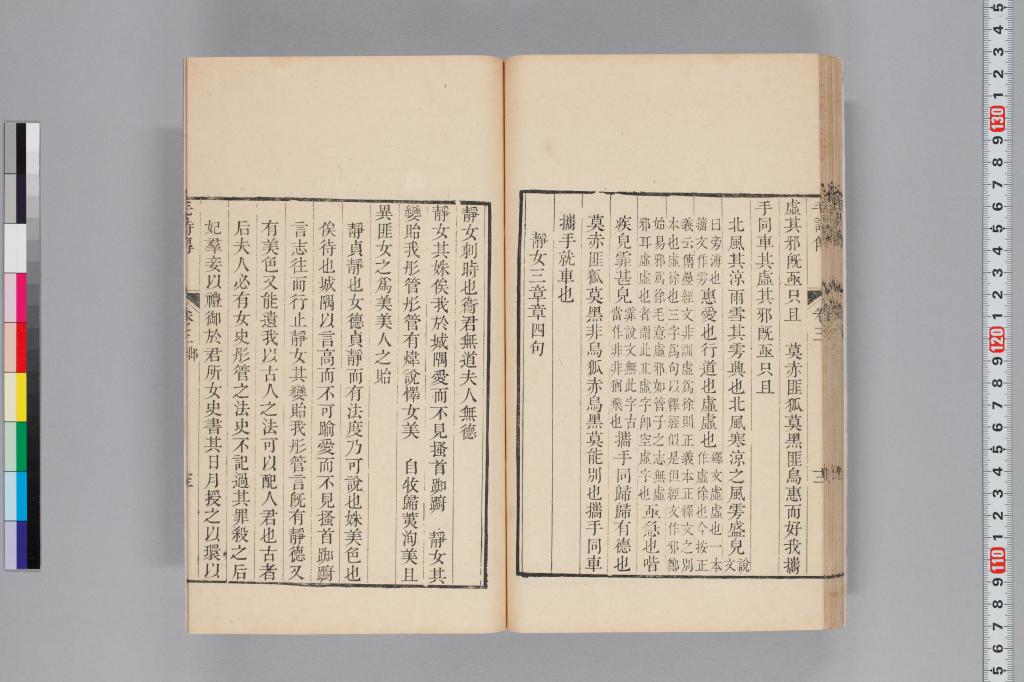 虛其邪旣亟只且　莫赤匪狐莫黑匪烏惠而好我攜
手同車其虛其邪旣亟只且
北風其涼雨雪其雱興也北風寒涼之風雱盛皃說文
曰雱溥也
籒文作雱惠愛也行道也虛虛也釋文虛虛也一本
作虛徐也今按正
義云傳㒹經文非訓虛爲徐則正義本正釋文之別
本也虛徐也三字爲句以釋經似是但經文作邪鄭
始易邪爲徐毛意虛邪如管子之志無虛
邪耳虛虛也者謂此丠虛字卽空虛字也亟急也喈
疾皃霏甚皃霏說文無此字古
當作非非猶飛也攜手同歸歸有德也
莫赤匪狐莫黑非烏狐赤烏黑莫能別也攜手同車
攜手就車也
靜女三章章四句
靜女刺時也衞君無道夫人無德
靜女其姝俟我於城隅愛而不見搔首踟躕　靜女其
孌貽我彤管彤管有煒說懌女美　自牧歸荑洵美且
異匪女之爲美美人之貽
靜貞靜也女德貞靜而有法度乃可說也姝美色也
俟待也城隅以言高而不可踰愛而不見搔首踟躕
言志往而行止靜女其孌貽我彤管言旣有靜德又
有美色又能遺我以古人之法可以配人君也古者
后夫人必有女史彤管之法史不記過其罪殺之后
妃羣妾以禮御於君所女史書其日月授之以環以
毛詩傳　卷三邶